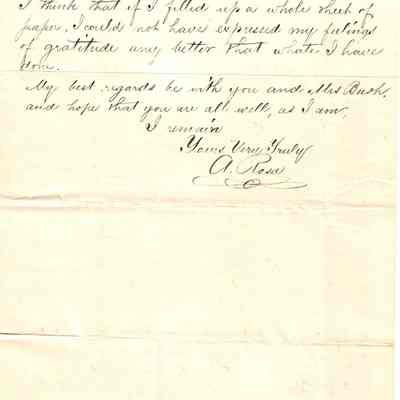 I think that if I filled up a whole sheet of
paper, I could not have expressed my feelings
of gratitude any better that whate I have
done.
My best regards be with you and Mrs Bush.
and hope that you are all well, as I am,
I remain
Yours Very Truly
A. Rosa